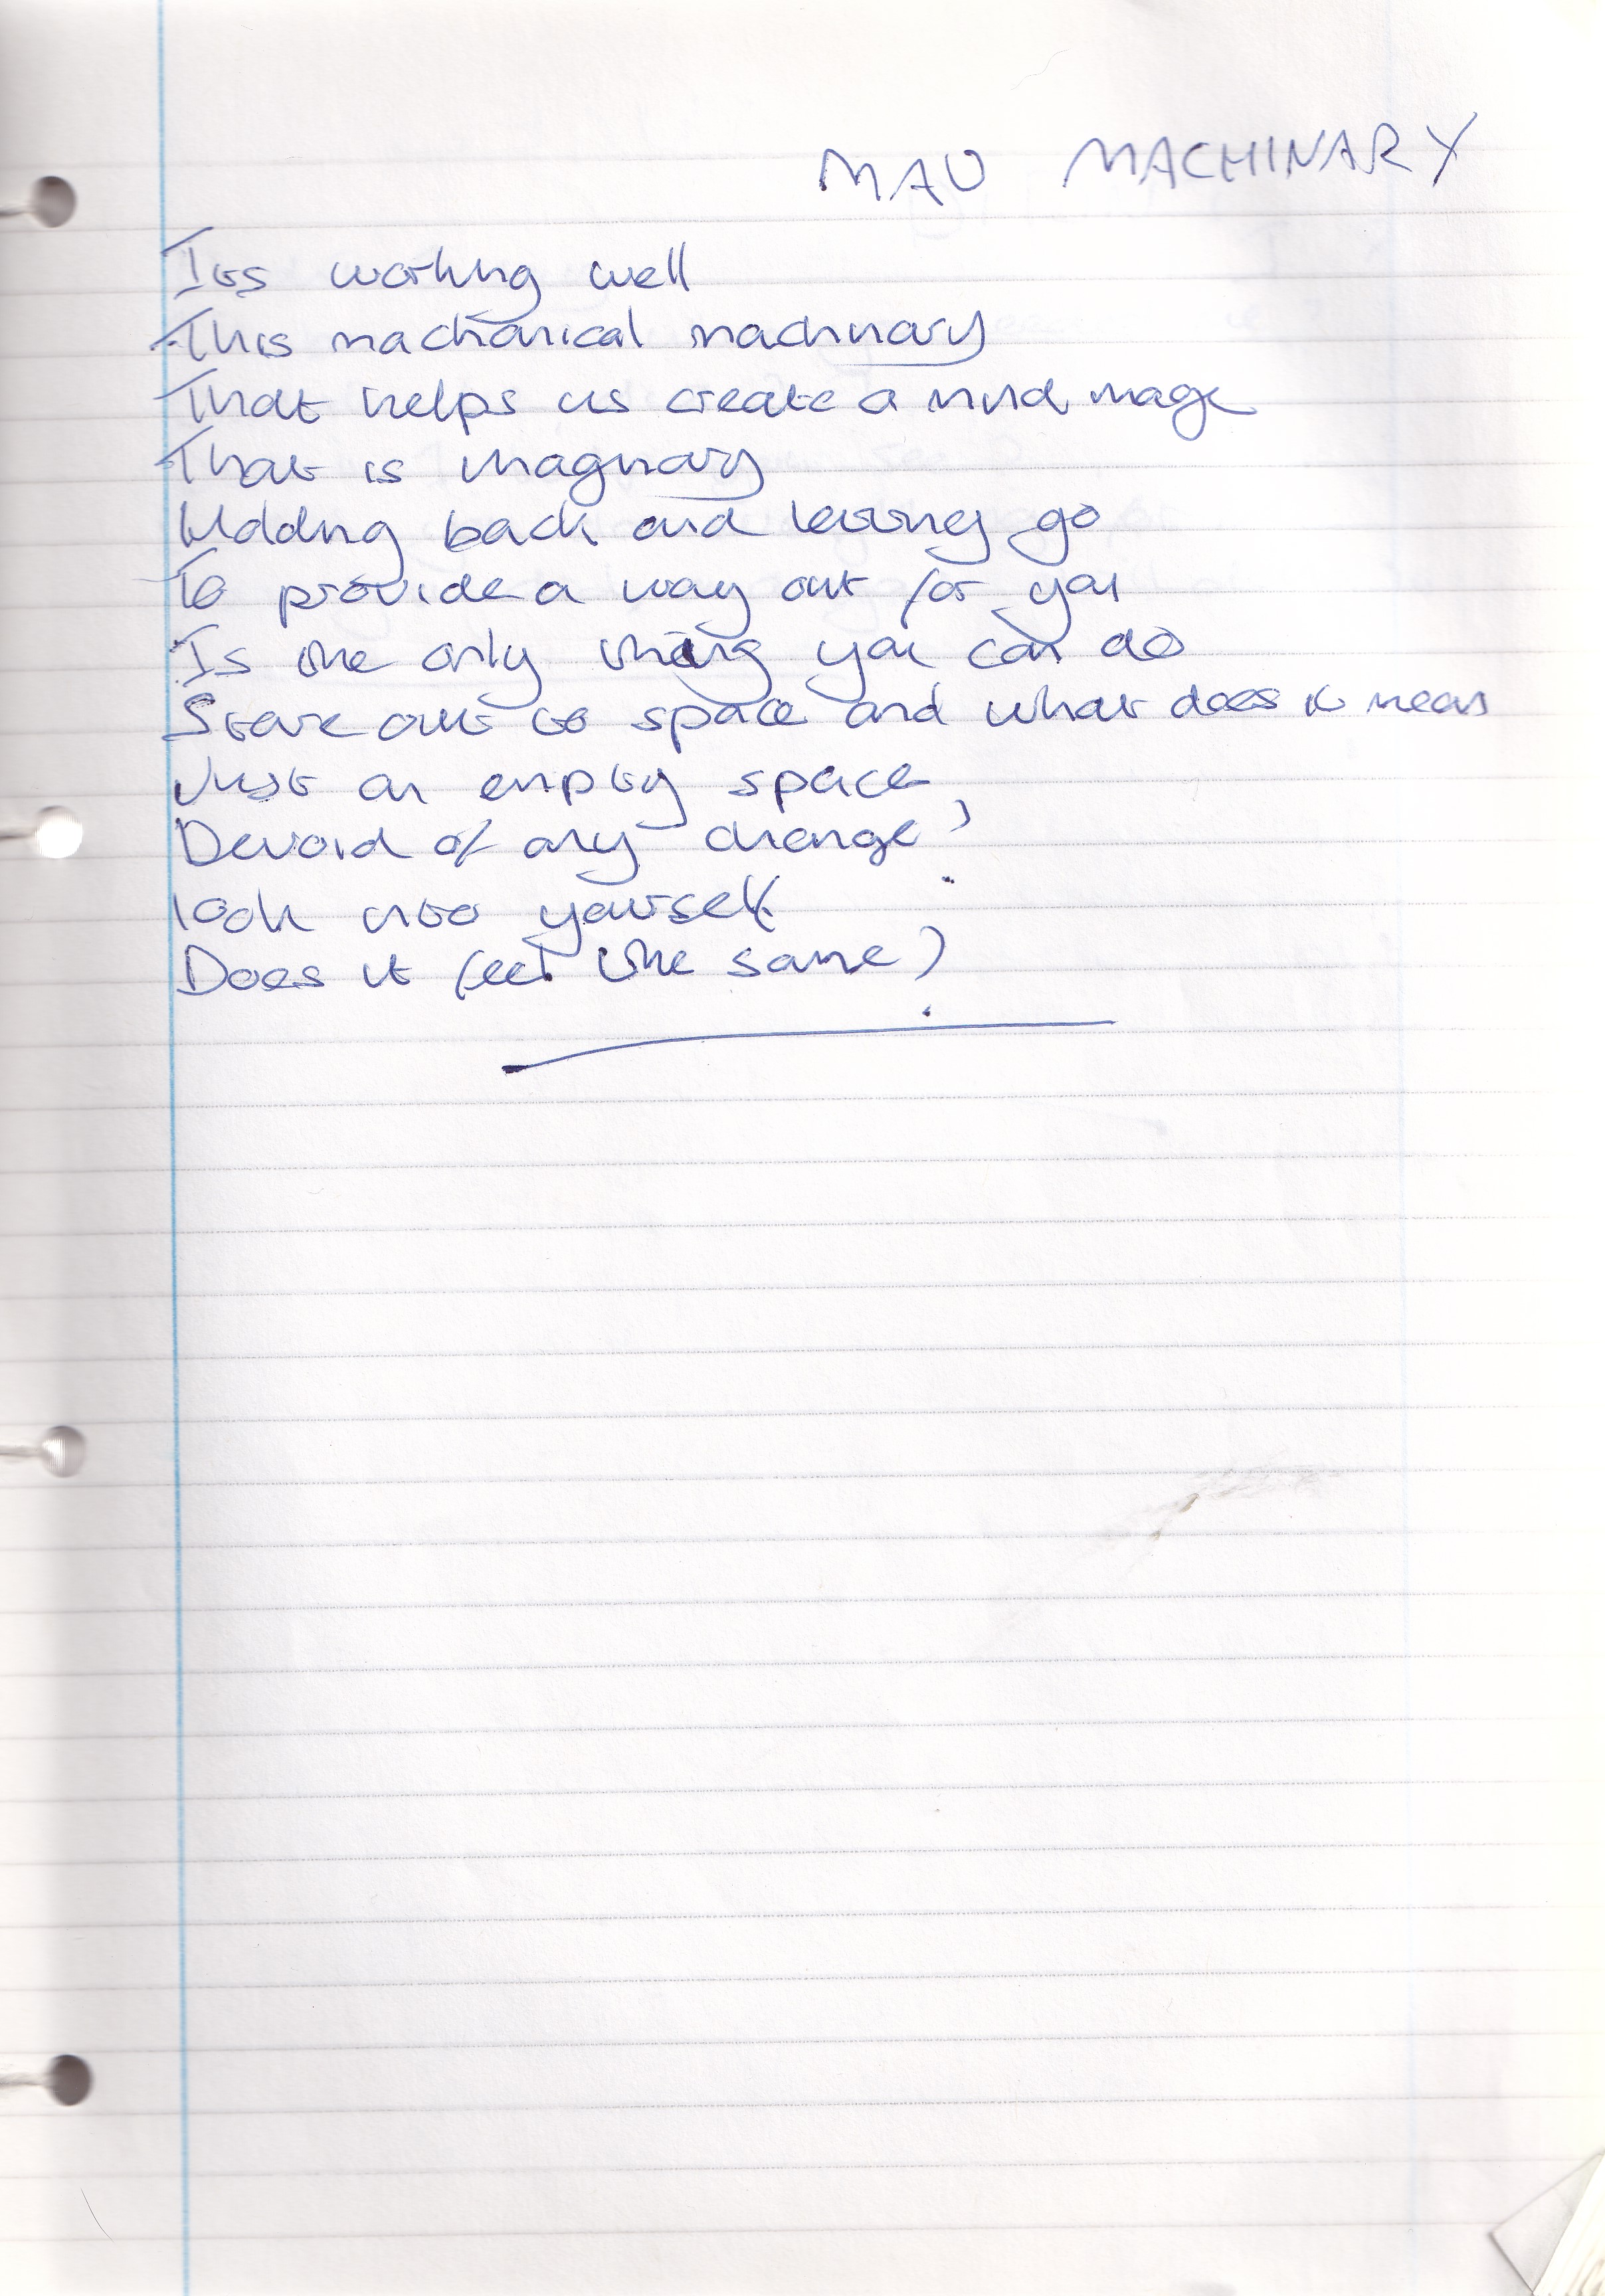 MAU MACHINARY
Its working well
This machanical machinary
That helps us create a mind image
That is imaginary
Holding back and letting go
To provide a way out for you
Is the only thing you can do
Stare out to space and what does it mean
Just an empty space,
Devoid of any change?
look into yourself
Does it feel the same?